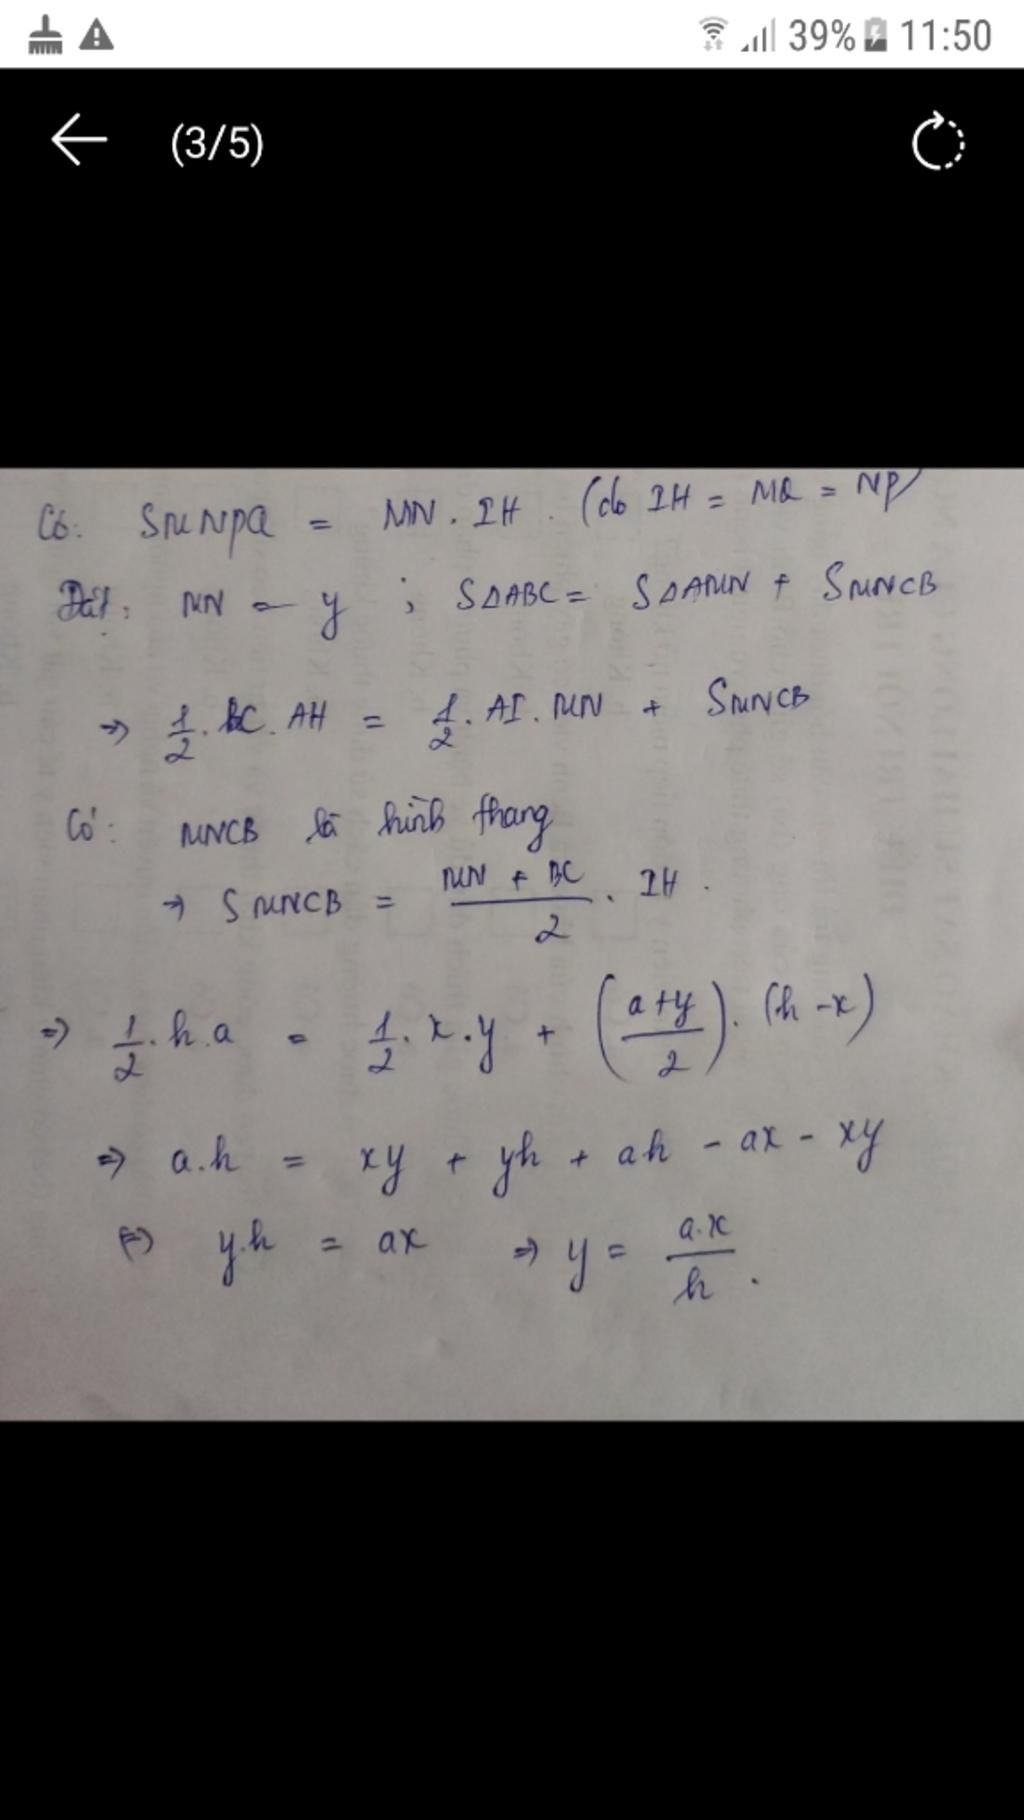 39% 11:50
(3/5)
Có: SMNPQ = MN . IH . (do IH = MQ = NP)
Đặt: MN = y ; SΔABC = SΔAMN + SMNCB
⇒ 1/2 . BC . AH = 1/2 . AI . MN + SMNCB
Có: MNCB là hình thang
→ SMNCB = (MN + BC)/2 . IH .
⇒ 1/2 . h . a = 1/2 . x . y + ((a+y)/2) . (h - x)
⇒ a.h = xy + yh + ah - ax - xy
(=) y.h = ax ⇒ y = a.x/h .